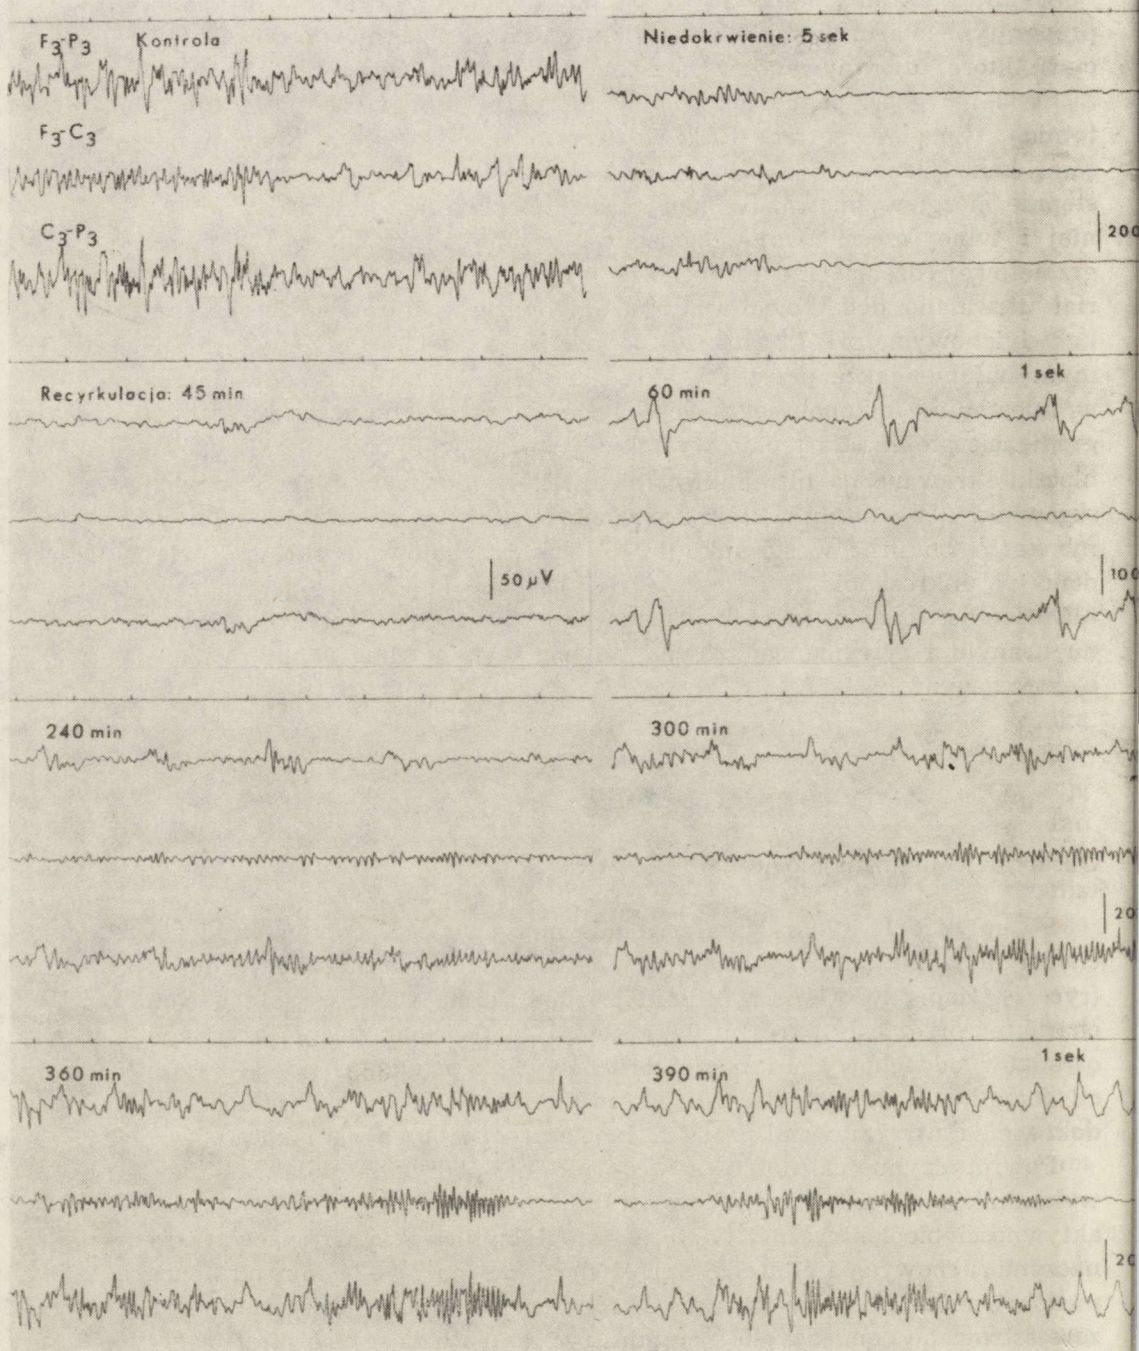 F3-P3 Kontrola
F3-C3
C3-P3
Niedokrwienie: 5 sek
200
Recyrkulacja: 45 min
50 µV
1 sek
60 min
100
240 min
300 min
20
360 min
1 sek
390 min
20